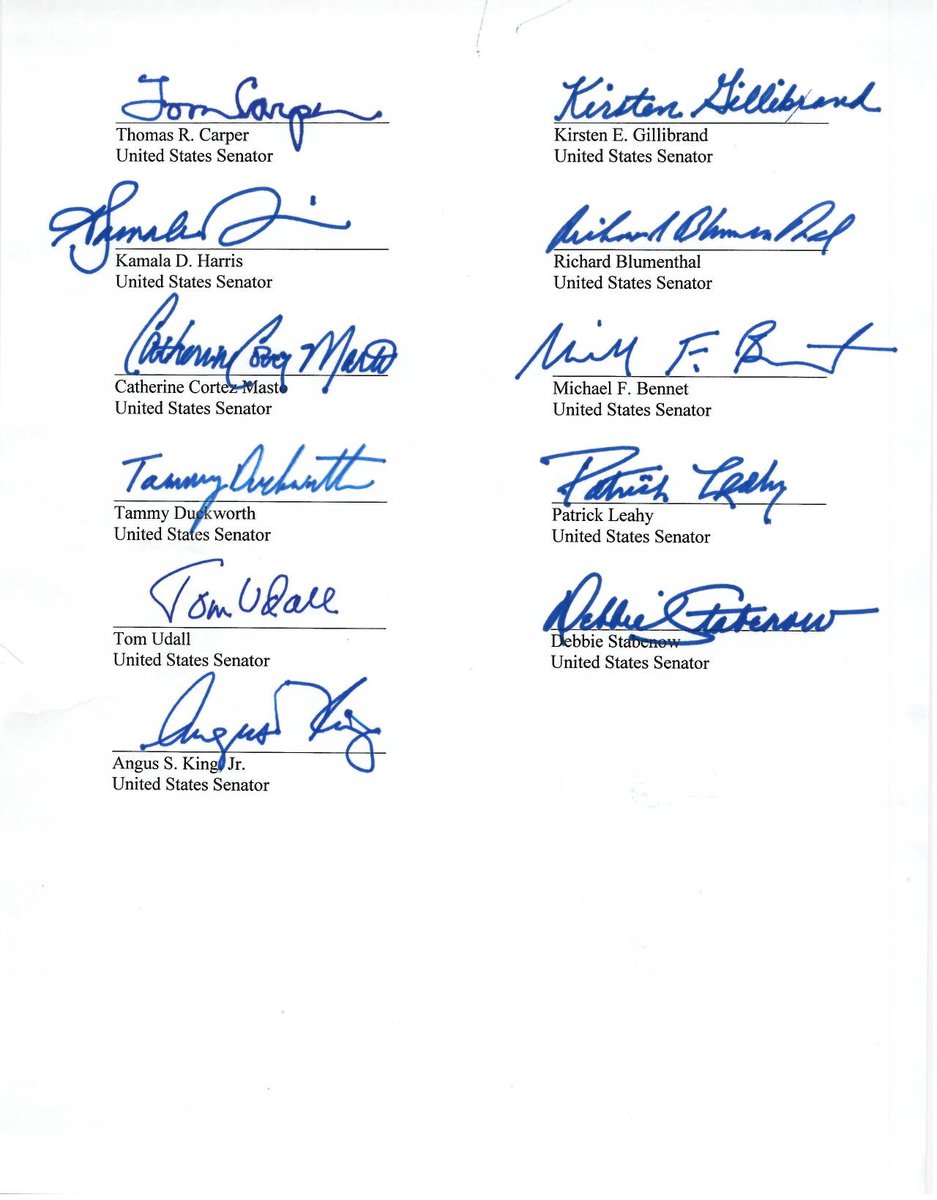 Tom Carper
Thomas R. Carper
United States Senator
Kirsten Gillibrand
Kirsten E. Gillibrand
United States Senator
Kamala
Kamala D. Harris
United States Senator
Richard Blumenthal
Richard Blumenthal
United States Senator
Catherine Cortez Masto
Catherine Cortez Masto
United States Senator
F. Bennet
Michael F. Bennet
United States Senator
Tammy Duckworth
Tammy Duckworth
United States Senator
Patrick Leahy
Patrick Leahy
United States Senator
Tom Udall
Tom Udall
United States Senator
Debbie Stabenow
Debbie Stabenow
United States Senator
Angus King
Angus S. King, Jr.
United States Senator